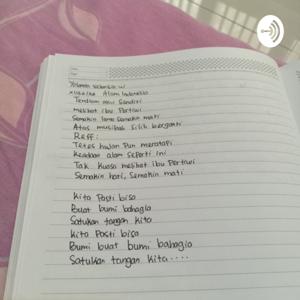 Alam Indonesia
Tenggelam sendiri
melihat ibu Pertiwi
Semakin lama Semakin mati
Atas musibah Silih berganti
Reff:
Tetes hujan Pun meratapi
Keadaan alam Seperti ini
Tak Kuasa melihat ibu Pertiwi
Semakin hari, Semakin mati
Kita Pasti bisa
Buat bumi bahagia
Satukan tangan kita
Kita Pasti bisa
Bumi buat bumi bahagia
Satukan tangan kita....